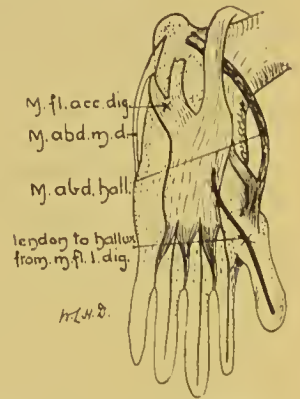 M.fl.acc.dig.
M.abd.m.d.
M.abd.hall.
tendon to hallux
from.m.fl.l.dig.
W.L.H.D.